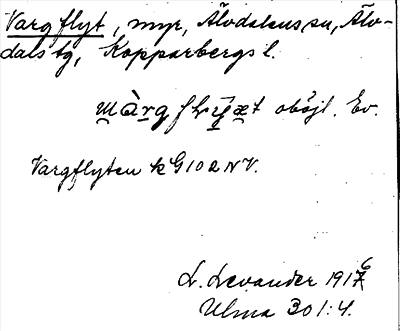 Vargflyt, myr, Älvdalens sn, Älv-
dals tg, Kopparbergs l.
oböjl. Ev.
Vargflyten k G102NV.
L. Levander 1916
Ulma 301:4.